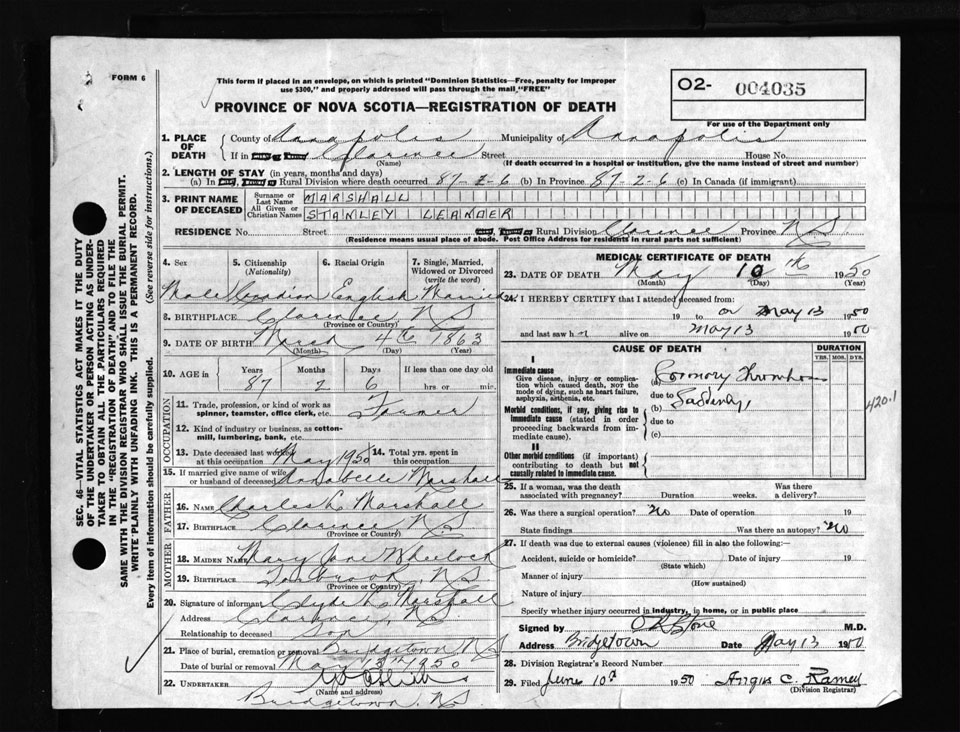 FORM 6
This form if placed in an envelope, on which is printed "Dominion Statistics—Free, penalty for improper
use $300," and properly addressed will pass through the mail "FREE"
O2- 004035
For use of the Department only
PROVINCE OF NOVA SCOTIA—REGISTRATION OF DEATH
SEC. 46—VITAL STATISTICS ACT MAKES IT THE DUTY
OF THE UNDERTAKER OR PERSON ACTING AS UNDER-
TAKER TO OBTAIN ALL THE PARTICULARS REQUIRED
IN THE "REGISTRATION OF DEATH" AND TO FILE THE
SAME WITH THE DIVISION REGISTRAR WHO SHALL ISSUE THE BURIAL PERMIT.
WRITE PLAINLY WITH UNFADING INK. THIS IS A PERMANENT RECORD.
Every item of information should be carefully supplied. (See reverse side for instructions.)
1. PLACE OF DEATH County of Annapolis Municipality of Annapolis
If in Clarence Street House No.
(Name) (If death occurred in a hospital or institution, give the name instead of street and number)
2. LENGTH OF STAY (in years, months and days)
(a) In Rural Division where death occurred 87-2-6 (b) In Province 87-2-6 (c) In Canada (if immigrant)
3. PRINT NAME OF DECEASED
Surname or Last Name MARSHALL
All Given or Christian Names STANLEY LEANDER
RESIDENCE No. Street Rural Division Clarence Province N.S.
(Residence means usual place of abode. Post Office Address for residents in rural parts not sufficient)
4. Sex 5. Citizenship (Nationality) 6. Racial Origin 7. Single, Married, Widowed or Divorced (write the word)
Male Canadian English Married
8. BIRTHPLACE Clarence N S
(Province or Country)
9. DATE OF BIRTH March 4th 1863
(Month) (Day) (Year)
10. AGE in Years Months Days If less than one day old
87 2 6 hrs. or min.
OCCUPATION
11. Trade, profession, or kind of work as spinner, teamster, office clerk, etc. Farmer
12. Kind of industry or business, as cotton-mill, lumbering, bank, etc.
13. Date deceased last worked at this occupation May 1950 14. Total yrs. spent in this occupation
15. If married give name of wife or husband of deceased Annabelle Marshall
FATHER
16. NAME Charles L Marshall
17. BIRTHPLACE Clarence N S
(Province or Country)
MOTHER
18. MAIDEN NAME Mary Jane Wheelock
19. BIRTHPLACE Torbrook, N S
(Province or Country)
20. Signature of informant Clyde Marshall
Address Clarence, N S
Relationship to deceased Son
21. Place of burial, cremation or removal Bridgetown N S
Date of burial or removal May 13th 1950
22. UNDERTAKER
(Name and address)
Bridgetown, N.S.
MEDICAL CERTIFICATE OF DEATH
23. DATE OF DEATH May 10th 1950
(Month) (Day) (Year)
24. I HEREBY CERTIFY that I attended deceased from
19 to on May 13 1950
and last saw h alive on May 13 1950
CAUSE OF DEATH DURATION
YRS. MOS. DYS.
I
Immediate cause
Give disease, injury or complication which caused death, NOT the mode of dying, such as heart failure, asphyxia, asthenia, etc.
(a) Coronary Thrombosis
due to Suddenly
Morbid conditions, if any, giving rise to immediate cause (stated in order proceeding backwards from immediate cause).
(b)
due to
(c)
420.1
II
Other morbid conditions (if important) contributing to death but not causally related to immediate cause.
25. If a woman, was the death associated with pregnancy? Duration weeks. Was there a delivery?
26. Was there a surgical operation? No Date of operation 19
State findings Was there an autopsy? No
27. If death was due to external causes (violence) fill in also the following:—
Accident, suicide or homicide? Date of injury 19
(State which)
Manner of injury
(How sustained)
Nature of injury
Specify whether injury occurred in industry, in home, or in public place
Signed by M.D.
Address Bridgetown Date May 13 1950
28. Division Registrar's Record Number
29. Filed June 10th 1950 Angus C. Ramey
(Division Registrar)